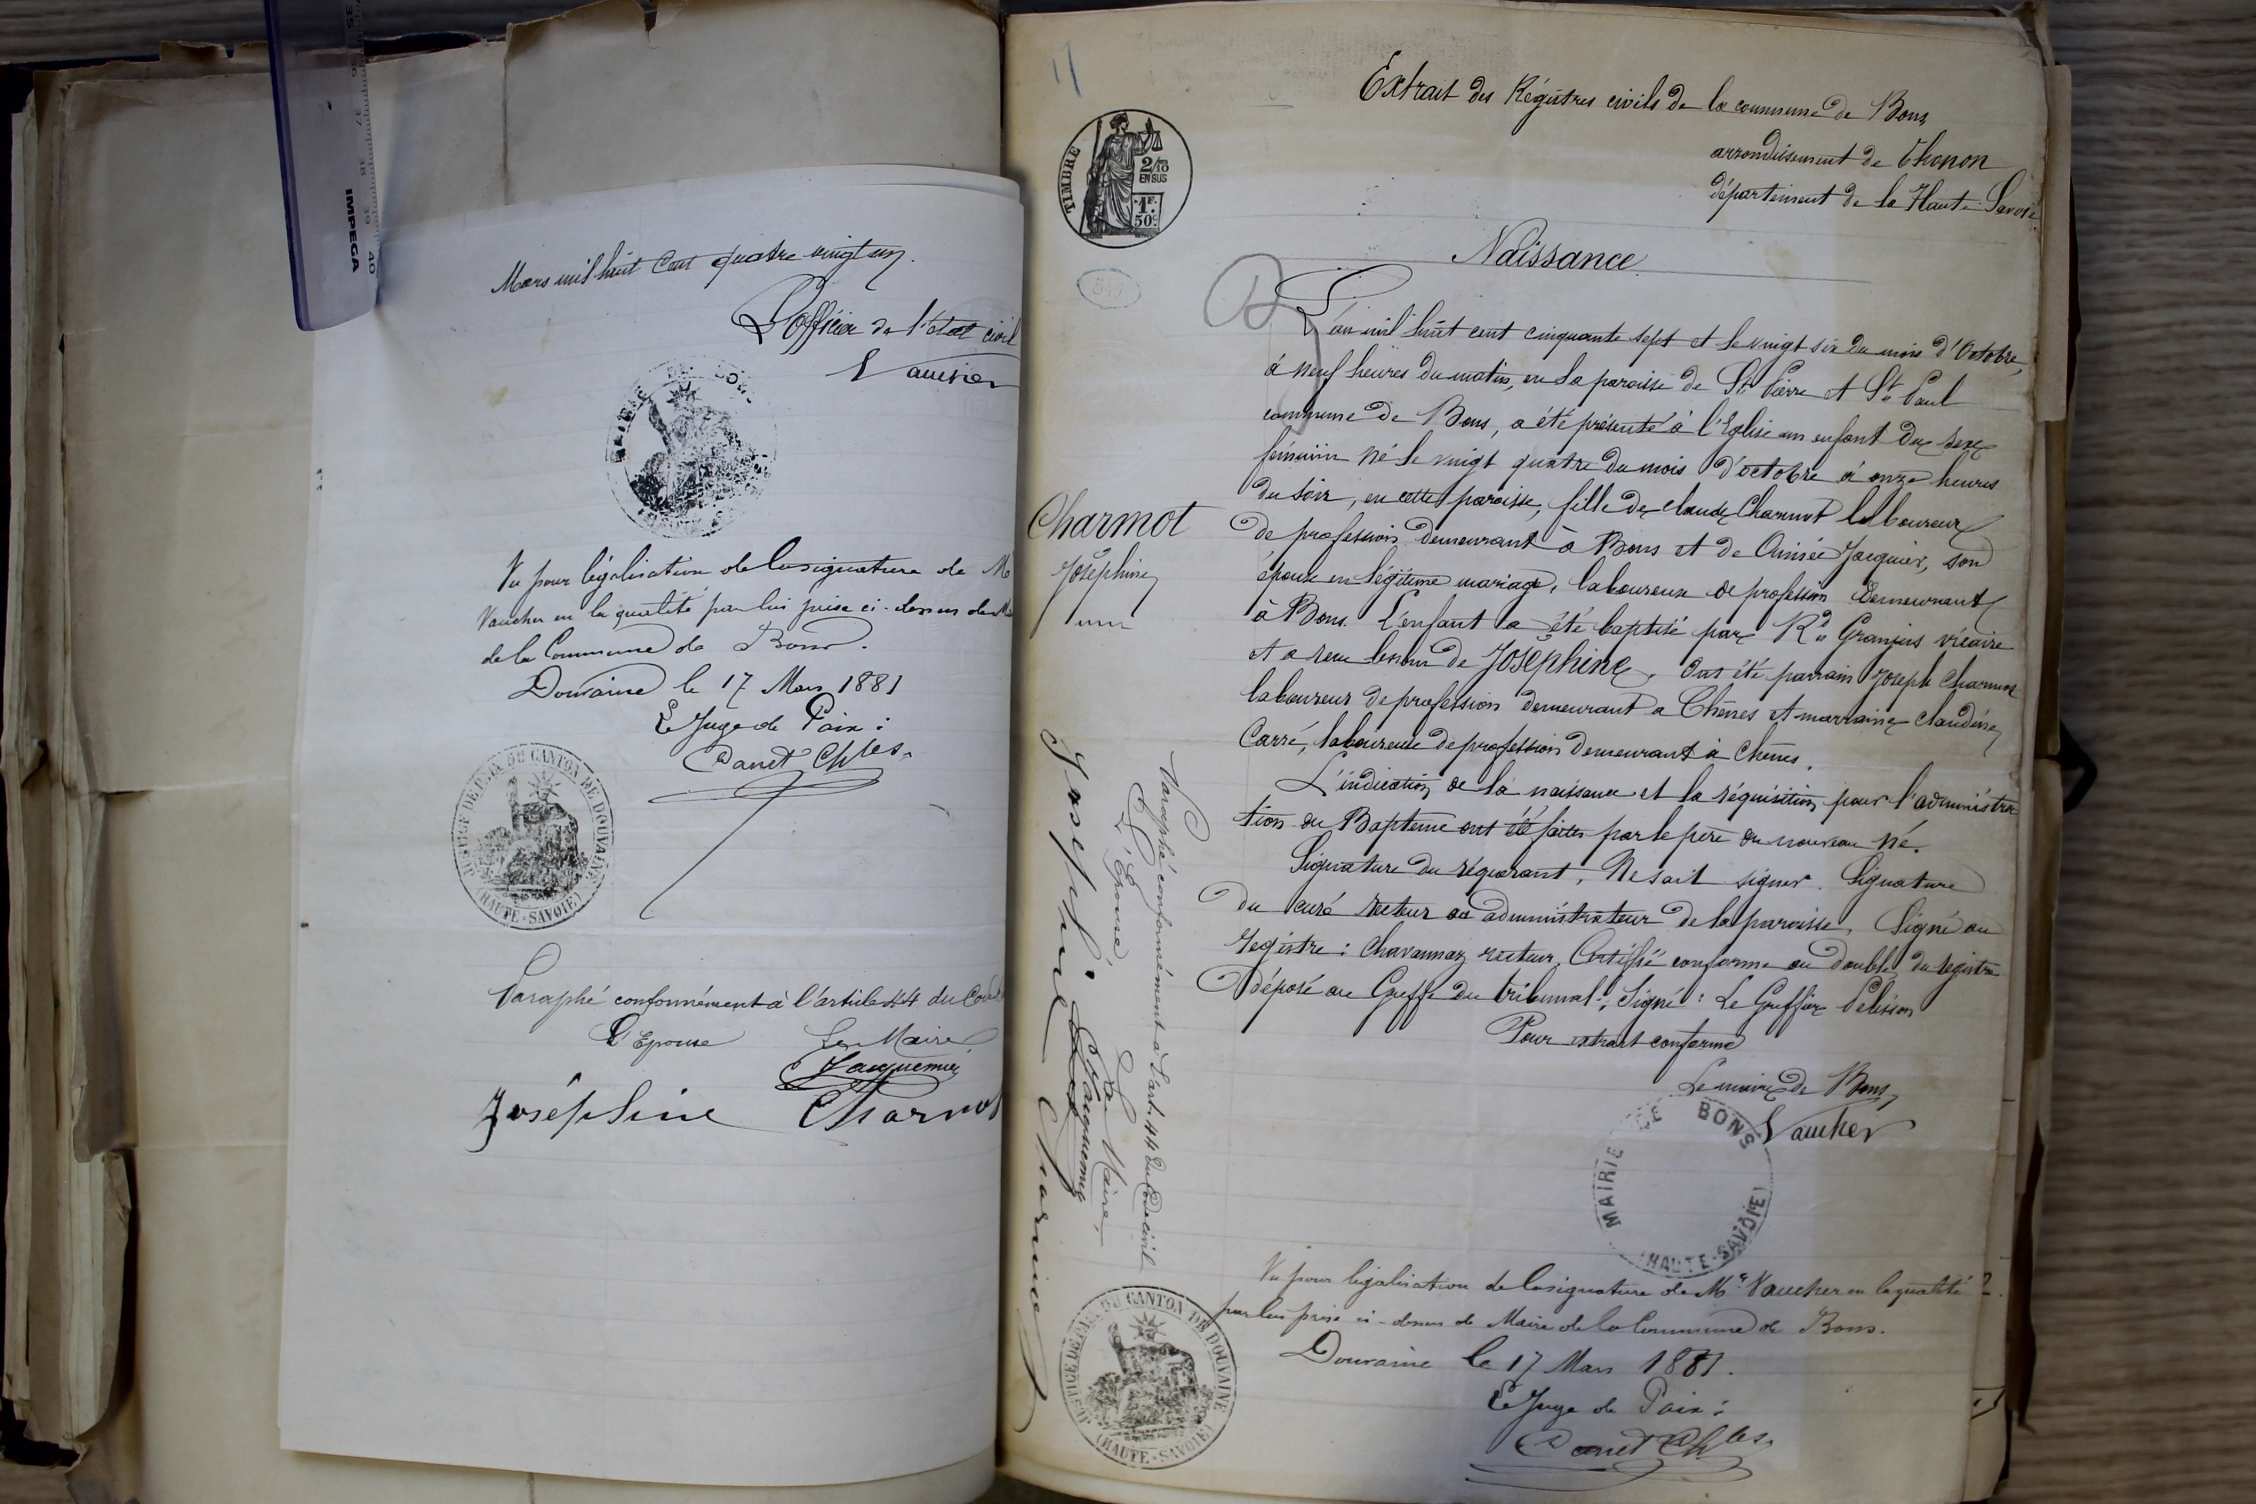 35 36 37 38 39 40
IMPEGA
Mars mil huit cent quatre vingt un.
L'officier de l'état civil
Vaucher
Vu pour légalisation de la signature de M
Vaucher en la qualité par lui prise ci-dessus de M
de la Commune de Bons.
Douvaine le 17 Mars 1881
Le Juge de Paix :
Canet Chles
JUSTICE DE PAIX DU CANTON DE DOUVAINE
(HAUTE-SAVOIE)
Paraphé conformément à l'article 44 du Code
L'Epouse Le Maire
Jacquemier
Joséphine Charmot
Extrait des Régistres civils de la commune de Bons
arrondissement de Thonon
département de la Haute Savoie
TIMBRE
2/10
EN SUS
1F.
50c
Naissance
L'an mil huit cent cinquante sept et le vingt six du mois d'Octobre,
à neuf heures du matin, en la paroisse de St Pierre et St Paul
commune de Bons, a été présenté à l'Eglise un enfant du sexe
féminin né le vingt quatre du mois d'octobre à onze heures
du soir, en cette paroisse, fille de Claude Charmot laboureur
de profession demeurant à Bons et de Aimée Jacquier, son
épouse en légitime mariage, laboureuse de profession demeurant
à Bons. L'enfant a été baptisé par Rd Granjus vicaire
et a reçu le nom de Joséphine. Ont été parrain Joseph Charmot
laboureur de profession demeurant à Chênes et marraine Claudine
Carré, laboureuse de profession demeurant à Chênes.
L'indication de la naissance et la réquisition pour l'administra
tion du Baptème ont été faites par le père du nouveau né.
Signature du réquérant, Ne sait signer. Signature
du curé recteur ou administrateur de la paroisse. Signé au
registre : Chavannaz recteur. Certifié conforme au double du registre
déposé au Greffe du tribunal. Signé : Le Greffier Pelisson
Pour extrait conforme
Le maire de Bons,
Vaucher
MAIRIE DE BONS
(HAUTE-SAVOIE)
Vu pour légalisation de la signature de Mr Vaucher en la qualité
par lui prise ci-dessus de Maire de la Commune de Bons.
Douvaine le 17 Mars 1881.
Le Juge de Paix :
Canet Chles
Charmot
Joséphine
Paraphé conformément à l'art. 44 du Code civil
L'Epouse, Le Maire,
Jacquemier
Joséphine Charmot
JUSTICE DE PAIX DU CANTON DE DOUVAINE
(HAUTE-SAVOIE)